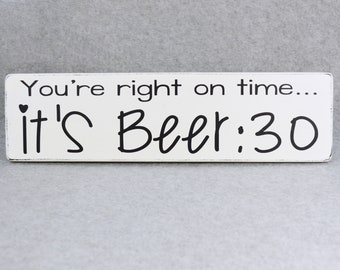 You're right on time...
it's Beer:30